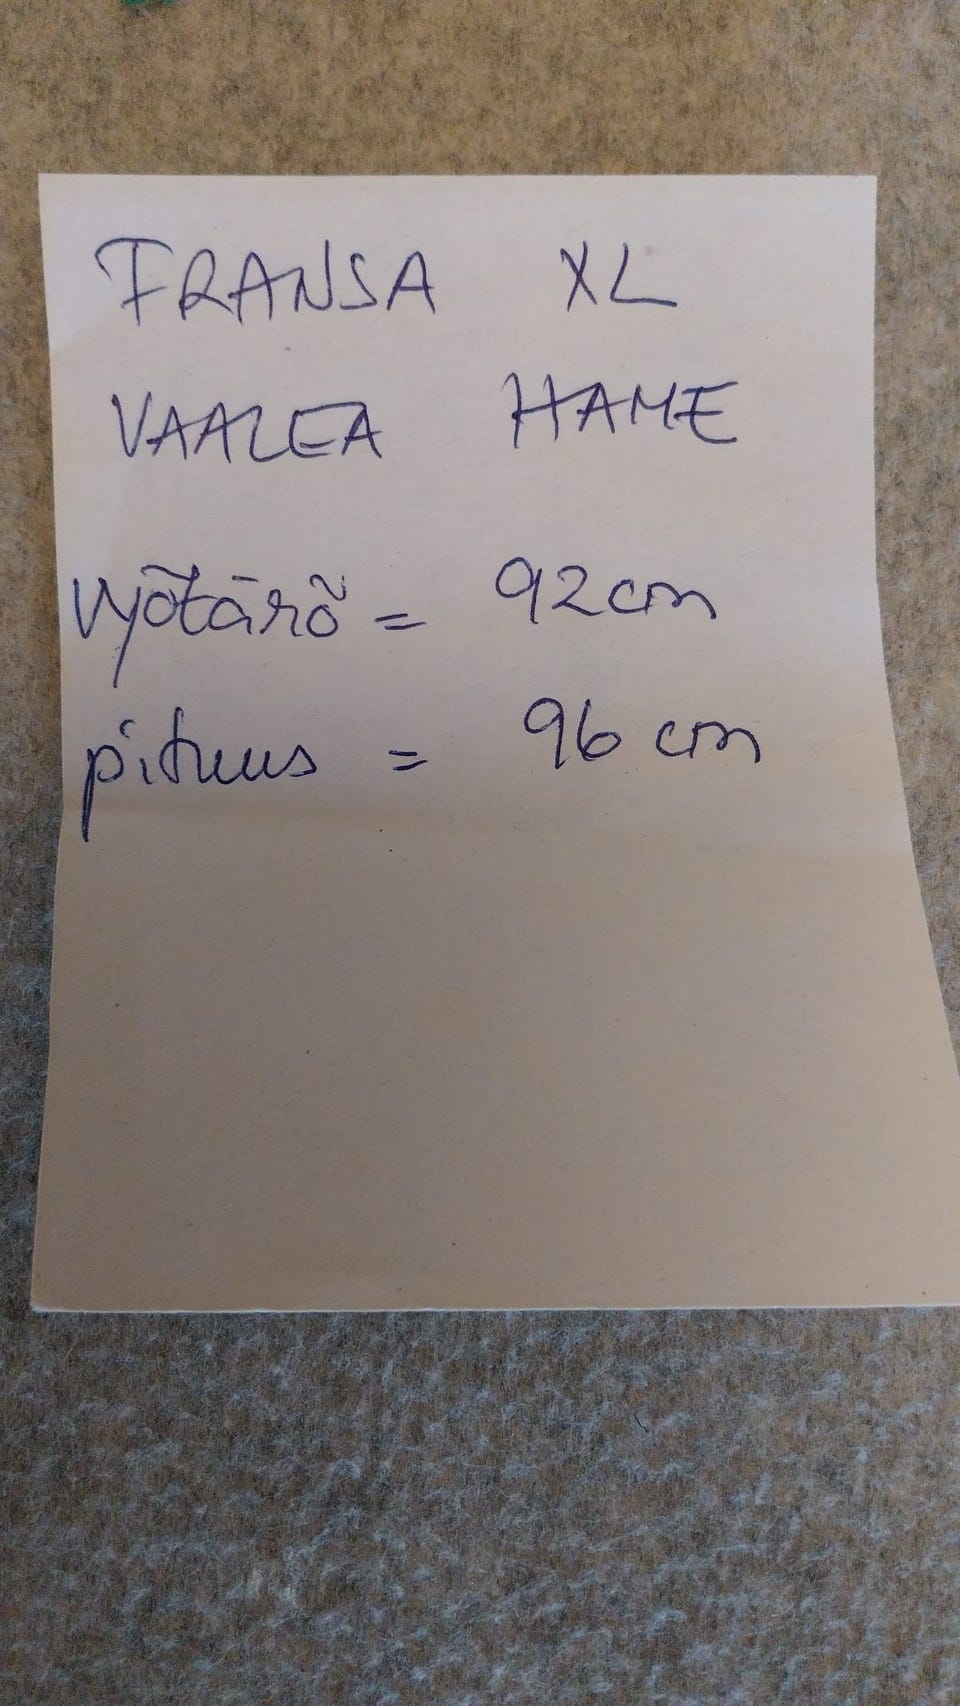 FRANSA XL
VAALEA HAME
vyötärö = 92cm
pituus = 96 cm